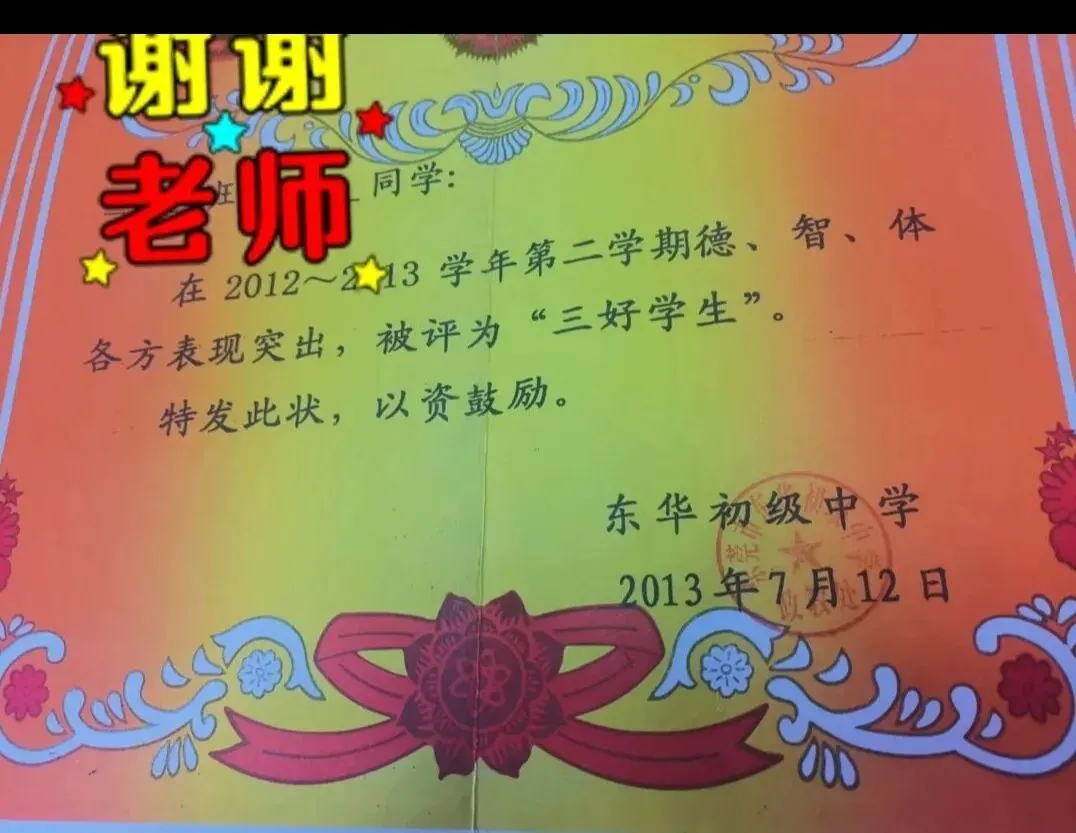 谢谢
老师
班 同学:
在 2012～2013 学年第二学期德、智、体
各方表现突出，被评为“三好学生”。
特发此状，以资鼓励。
东华初级中学
2013 年 7 月 12 日
政教处